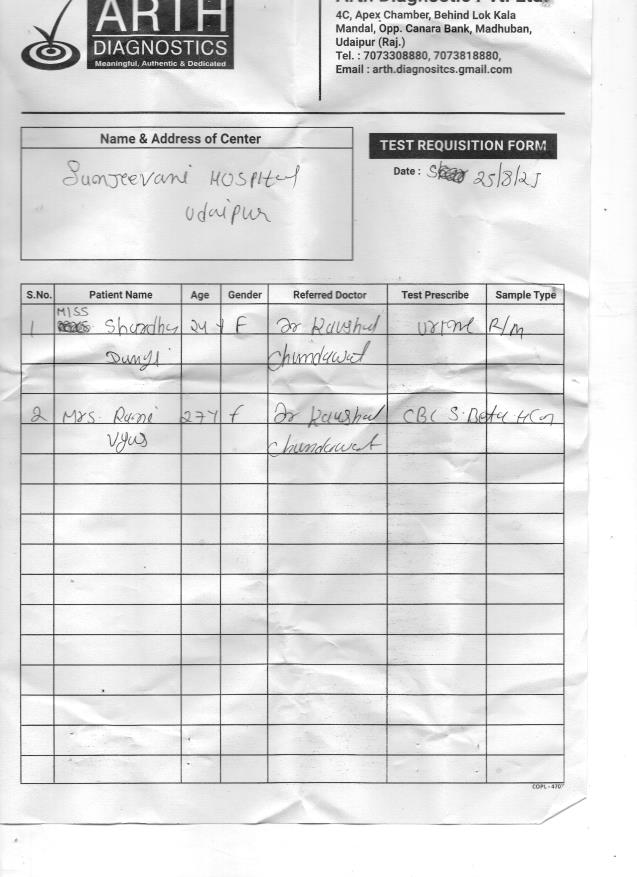 ARTH
DIAGNOSTICS
Meaningful, Authentic & Dedicated
4C, Apex Chamber, Behind Lok Kala
Mandal, Opp. Canara Bank, Madhuban,
Udaipur (Raj.)
Tel. : 7073308880, 7073818880,
Email : arth.diagnositcs.gmail.com
Name & Address of Center
Sunjeevani HOSPital
Udaipur
TEST REQUISITION FORM
Date : 25/8/25
S.No. Patient Name Age Gender Referred Doctor Test Prescribe Sample Type
MISS
1 Shardha 24 Y F Dr Kaushal Urine R/m
Dungi Chundawat
2 Mrs. Rani 27Y f Dr Kaushal CBC S. Beta HCG
Vyas Chundawat
COPL-470